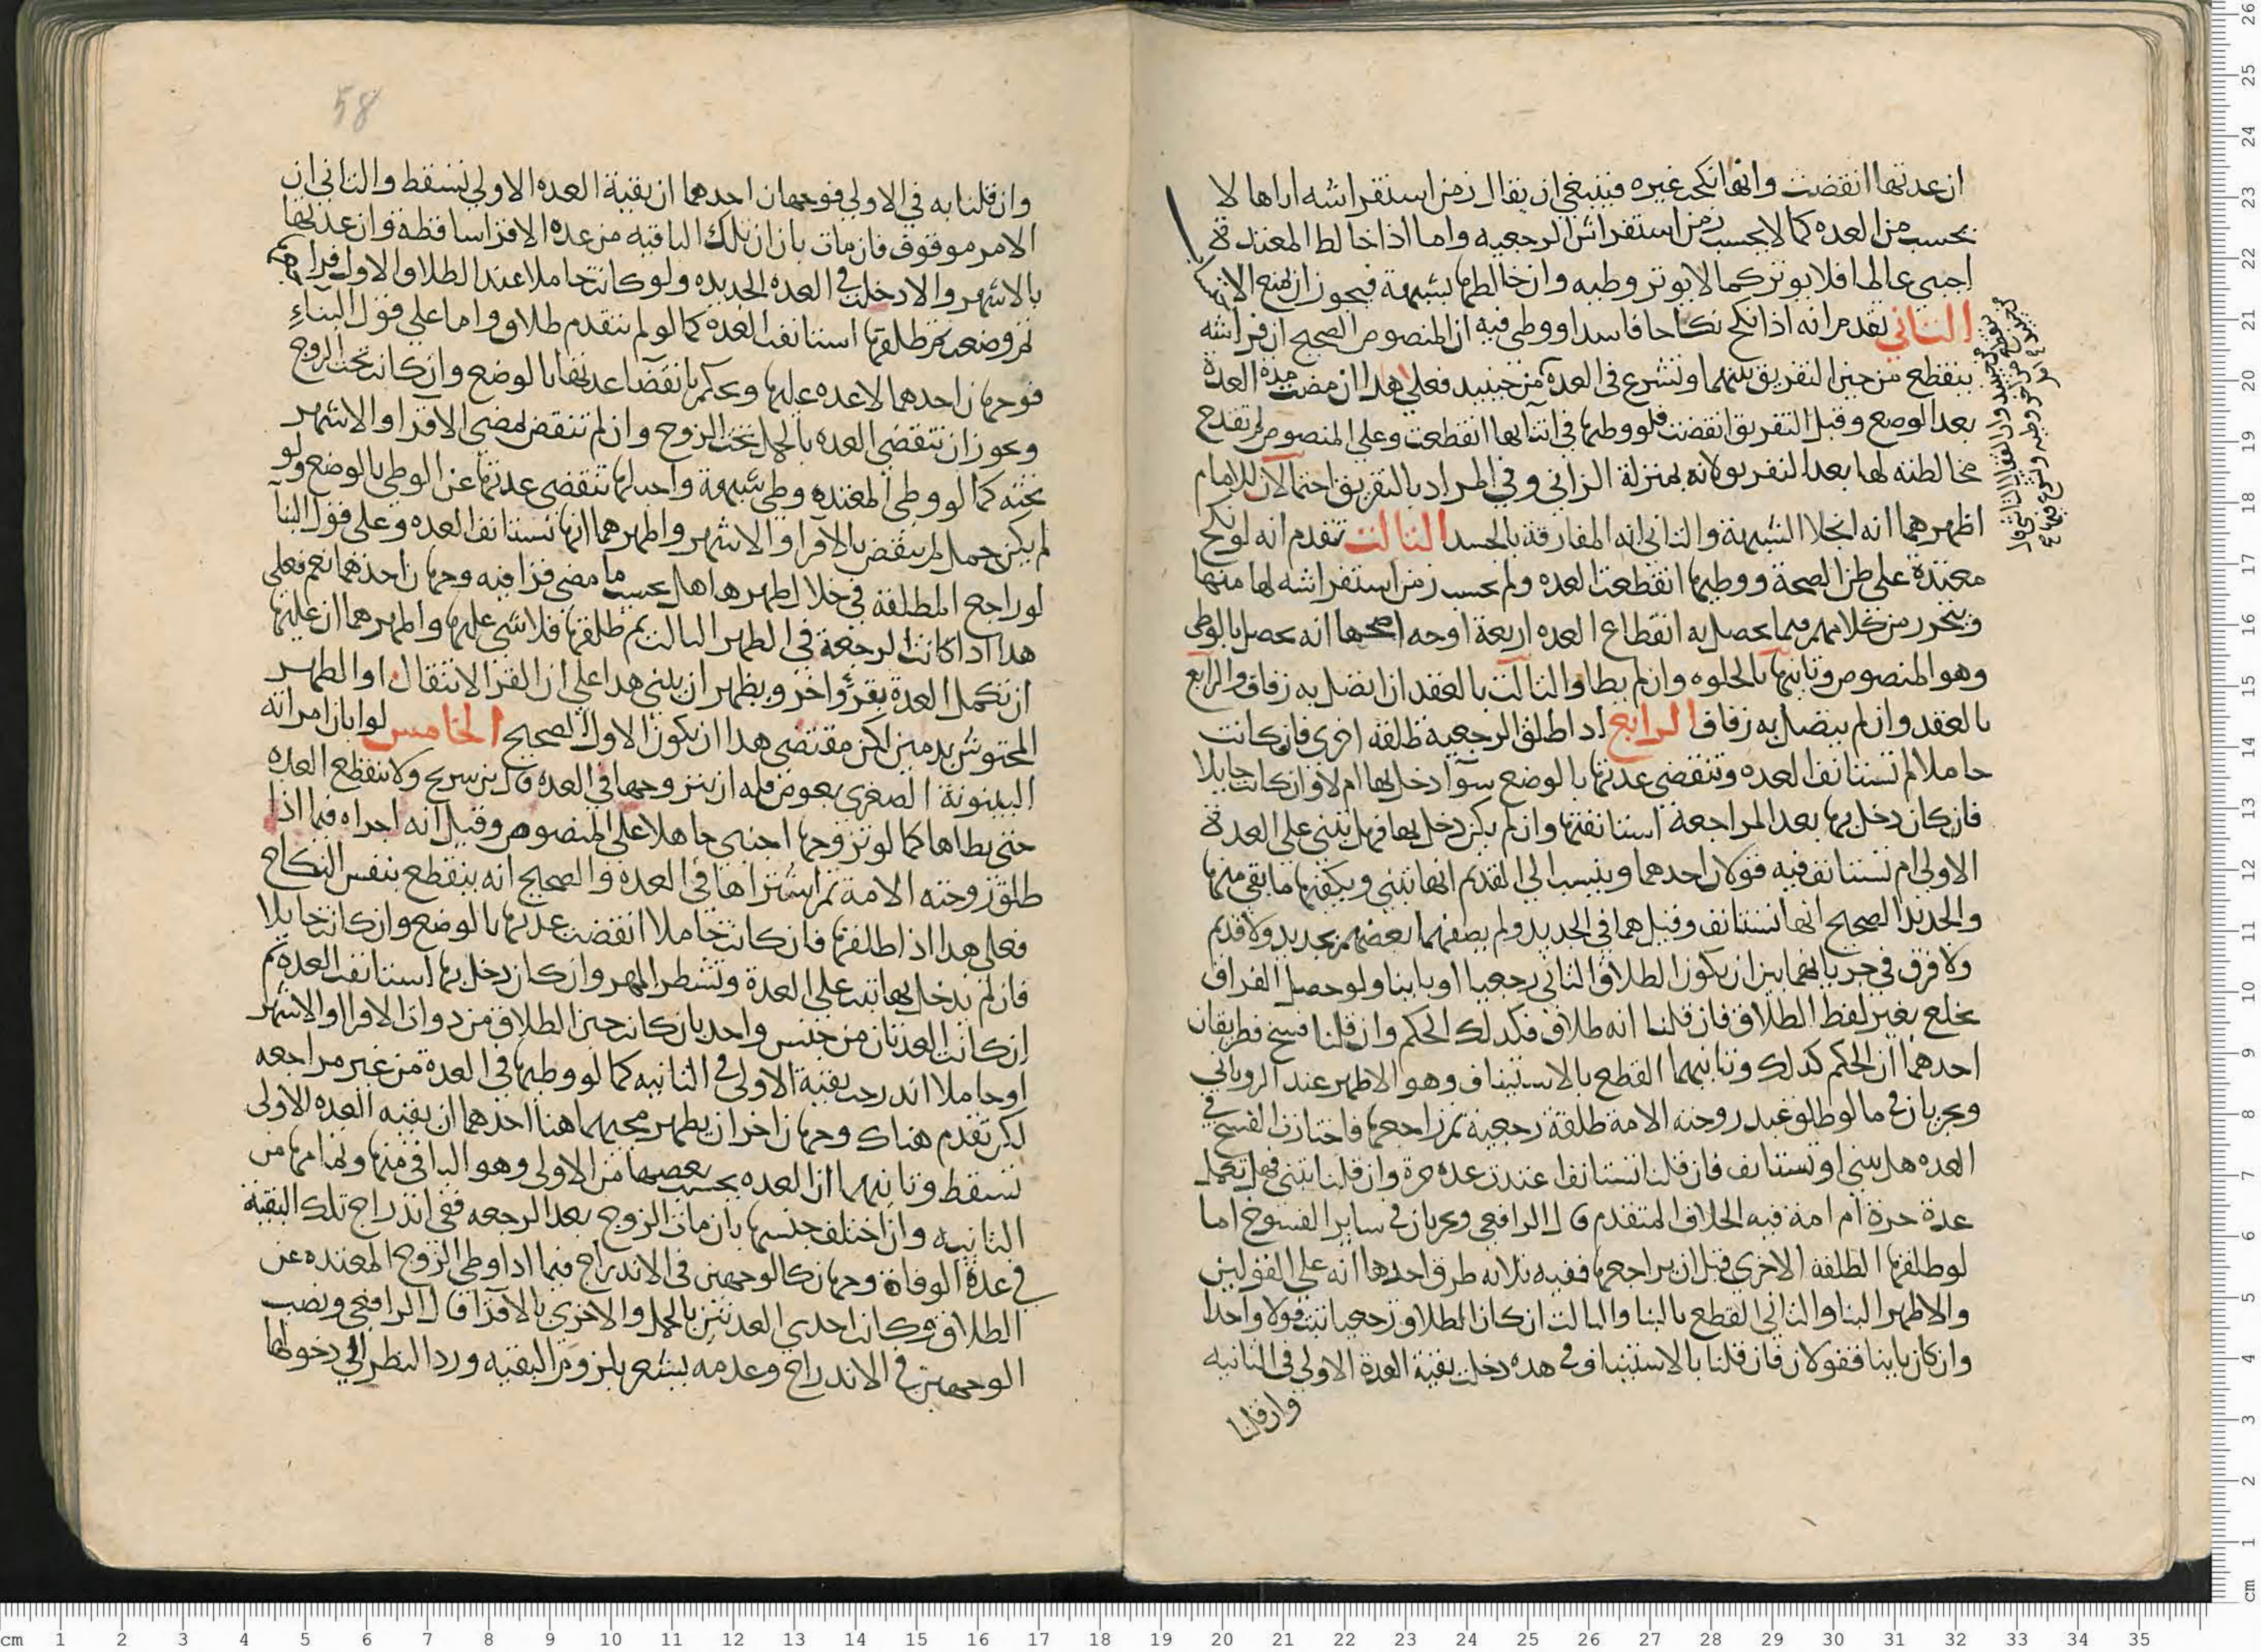 ان عدتها انقضت وانها نكحت غيره فينبغي ان يقال زمن استفراشه اياها لا
يحسب من العده كما لا يحسب زمن استفراش الرجعيه واما اذا خالط المعتدة
اجنبي عالما فلا يوثر كما لا يوثر وطيه وان خالطها بشبهة فيجوز ان يمنع الاحتساب
الثاني تقدم انه اذا نكح نكاحا فاسدا ووطي فيه ان المنصوص الصحيح ان فراشه
ينقطع من حين التفريق بينهما وتشرع في العدة من حينيد فعلي هدا ان مضت مدة العدة
بعد الوضع وقبل التفريق انقضت فلو وطيها في اثنايها انقطعت وعلي المنصوص لم تقدح
مخالطته لها بعد التفريق لانه بمنزلة الزاني وفي المراد بالتفريق احتمالان للامام
اظهرهما انه انجلا الشبهة والثاني انه المفارقة بالجسد الثالث تقدم انه لو نكح
معتدة علي ظن الصحة ووطيها انقطعت العده ولم يحسب زمن استفراشه لها منها
ويتحرر من كلامهم فيما يحصل به انقطاع العده اربعة اوجه اصحها انه يحصل بالوطي
وهو المنصوص وثانيها بالخلوه وان لم يطا والثالث بالعقد ان اتصل به زفاف والرابع
بالعقد وان لم يتصل به زفاف الرابع ادا طلق الرجعية طلقه اخري فان كانت
حاملا لم تستانف العده وتنقضي عدتها بالوضع سوآ دخل بها ام لا وان كانت حايلا
فان كان دخل بها بعد المراجعة استانفتها وان لم يكن دخل بها فهل تبني علي العدة
الاولي ام تستانف فيه قولان احدهما وينسب الي القديم انها تبني ويكفيها ما بقي منها
والجديد الصحيح انها تستانف وقيل هما في الجديد ولم يصفهما بعضهم بجديد ولا قديم
ولا فرق في جريانهما بين ان يكون الطلاق الثاني رجعيا او باينا ولو حصل الفراق
بخلع بغير لفظ الطلاق فان قلنا انه طلاق فكدلك الحكم وان قلنا فسخ فطريقان
احدهما ان الحكم كدلك وثانيهما القطع بالاستيناف وهو الاظهر عند الروياني
ويجريان في ما لو طلق عبد زوجته الامة طلقة رجعية ثم راجعها فاختارت الفسخ في
العده هل تبني او تستانف فان قلنا تستانف اعتدت عده حرة وان قلنا تبني فهل تكمل
عدة حرة ام امة فيه الخلاف المتقدم قال الرافعي ويجريان في ساير الفسوخ اما
لو طلقها الطلقه الاخري قبل ان يراجعها ففيه ثلاثه طرق احدها انه علي القولين
والاظهر البنا والثاني القطع بالبنا والثالث ان كان الطلاق رجعيا بنت قولا واحدا
وان كان باينا فقولان فان قلنا بالاستيناف في هده دخلت بقية العدة الاولي في الثانيه
وان قلنا
58
وان قلنا به في الاولي فوجهان احدهما ان بقية العده الاولي تسقط والثاني ان
الامر موقوف فان مات بان ان تلك الباقيه من عده الاقرا ساقطة وان عدتها
بالاشهر والا دخلت في العده الجديده ولو كانت حاملا عند الطلاق الاول فراجعها
ثم وضعت ثم طلقها استانفت العدة كما لو لم يتقدم طلاق واما علي قول البناء
فوجهان احدهما لا عده عليها ويحكم بانقضا عدتها بالوضع وان كانت تحت الزوج
ويجوز ان تنقضي العده بالحمل تحت الزوج وان لم تنقض بمضي الاقرا والاشهر
تحته كما لو وطي المعتده وطي شبهة واحبلها تنقضي عدتها عن الوطي بالوضع ولو
لم يكن حمل لم تنقض بالاقرا والاشهر واظهرهما انها تستانف العده وعلي قول البنآ
لو راجع المطلقة في خلال طهر هل يحسب ما مضي قرا فيه وجهان احدهما نعم فعلي
هدا ادا كانت الرجعة في الطهر الثالث ثم طلقها فلا شي عليها واظهرهما ان عليها
ان تكمل العدة بقرؤ اخر ويظهر ان يبني هدا علي ان القرا الانتقال او الطهر
المحتوش بدمين لكن مقتضي هدا ان يكون الاول الصحيح الخامس لو ابان امراته
البينونة الصغري بعوض فله ان يتزوجها في العده قال بن سريج ولا تنقطع العده
حتي يطاها كما لو تزوجها اجنبي جاهلا علي المنصوص وقيل انه اجراه فيما اذا
طلق زوجته الامة ثم اشتراها في العده والصحيح انه ينقطع بنفس النكاح
فعلي هدا اذا طلقها فان كانت حاملا انقضت عدتها بالوضع وان كانت حايلا
فان لم يدخل بها بنت علي العدة وتشطر المهر وان كان دخل بها استانفت العدة ثم
ان كانت العدتان من جنس واحد بان كانت حين الطلاق من دوات الاقرا او الاشهر
او حاملا اندرجت بقية الاولي في الثانيه كما لو وطيها في العدة من غير مراجعه
لكن تقدم هناك وجهان اخران يظهر مجيهما هنا احدهما ان بقيه العده الاولي
تسقط وثانيهما ان العده يحسب بعضها من الاولي وهو الباقي منها وتمامها من
الثانيه وان اختلف جنسها بان مات الزوج بعد الرجعه ففي اندراج تلك البقية
في عدة الوفاة وجهان كالوجهين في الاندراج فيما ادا وطي الزوج المعتده عن
الطلاق وكانت احدي العدتين بالحمل والاخري بالاقرآ قال الرافعي ونصب
الوجهين في الاندراج وعدمه يشعر بلزوم البقيه ورد النظر الي دخولها